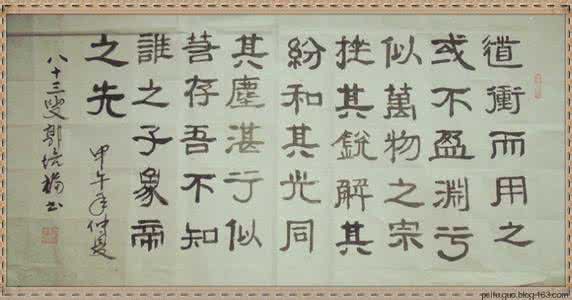 道衝而用之
或不盈淵兮
似萬物之宗
挫其銳解其
紛和其光同
其塵湛兮似
若存吾不知
誰之子象帝
之先
甲午年仲夏
八十三叟郭培書
peifu.guo.blog.163.com